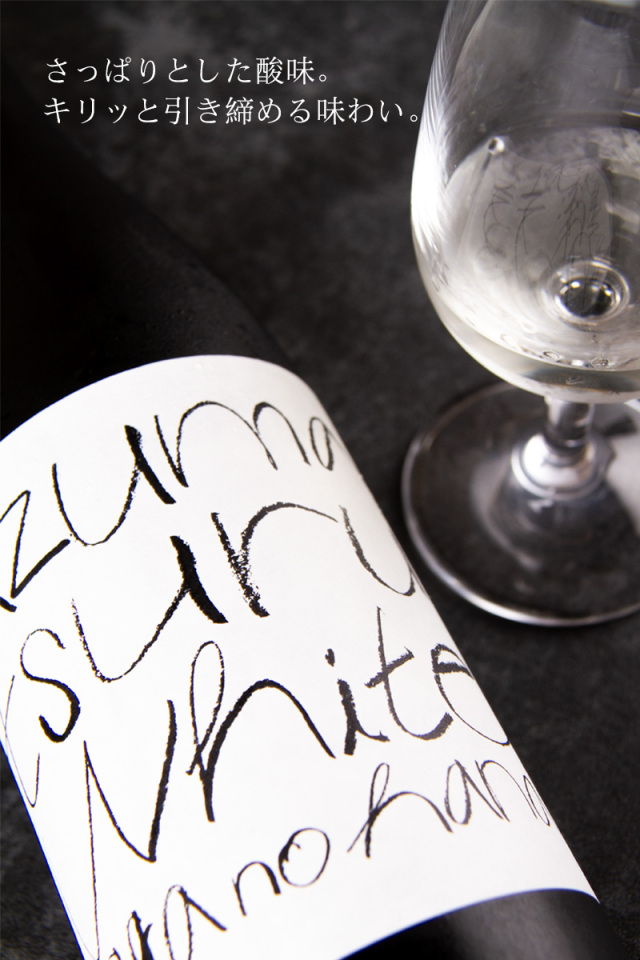 さっぱりとした酸味。
キリッと引き締める味わい。
zuma
tsuru
White
ano hana